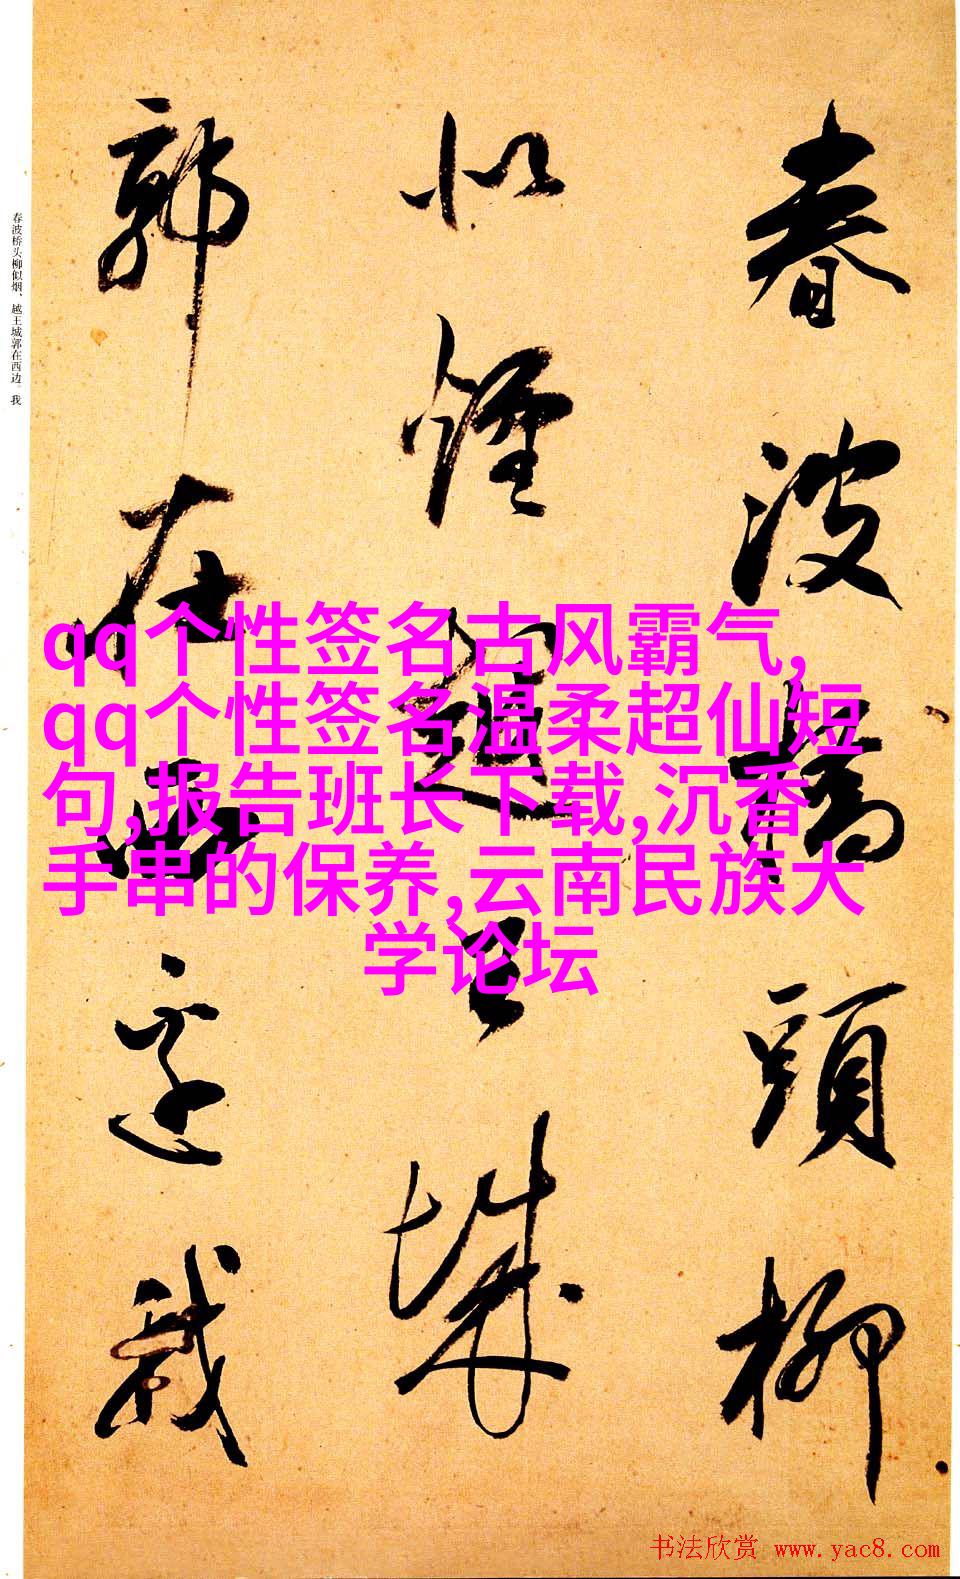 春波橋頭柳
似煙越王城
郭在西邊我
春波桥头柳似烟、越王城郭在西边。我
qq个性签名古风霸气,
qq个性签名温柔超仙短
句,报告班长下载,沉香
手串的保养,云南民族大
学论坛
书法欣赏 www.yac8.com